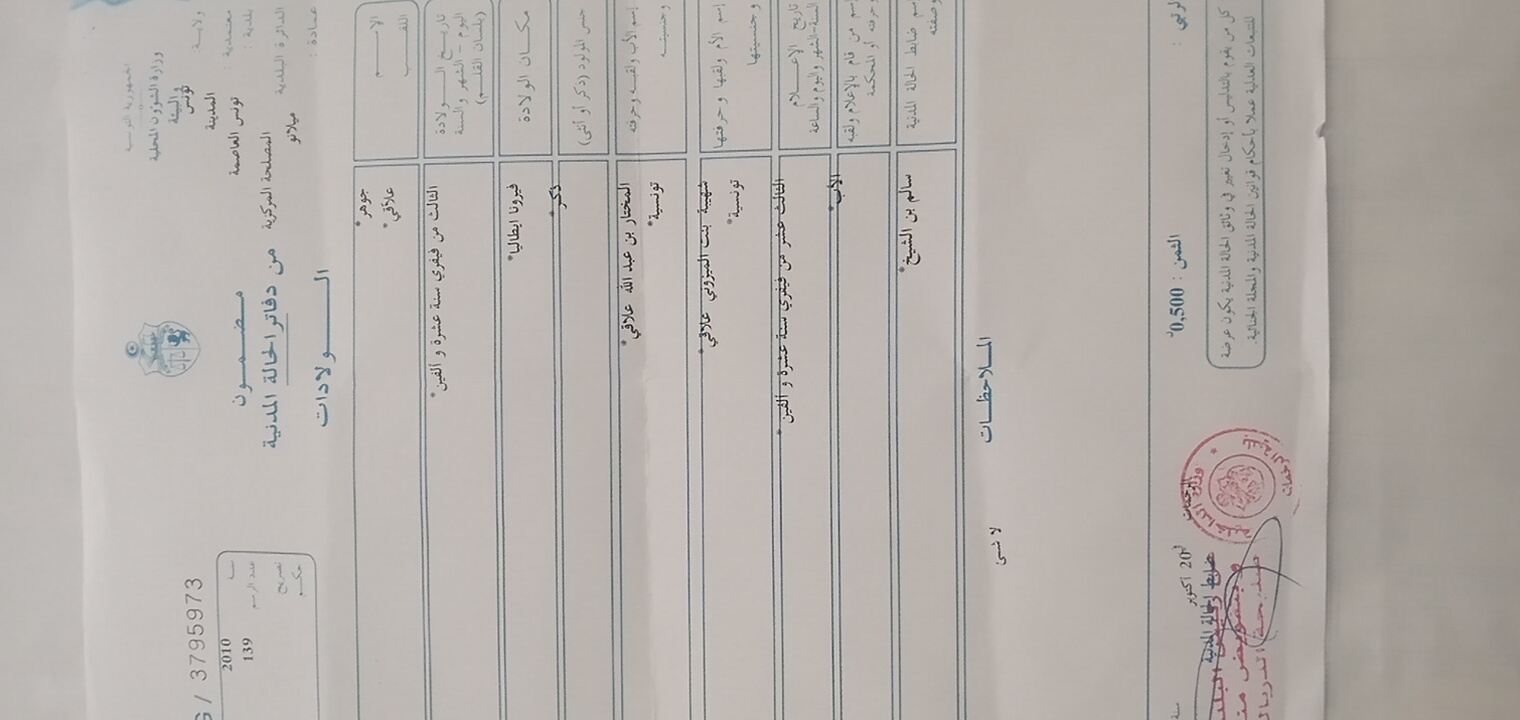 الجمهورية التونسية
وزارة الشؤون المحلية
والبيئة
ولايـــة : تونس
معتمدية : المدينة
بلدية : تونس العاصمة
الدائرة البلدية : المصلحة المركزية
عمادة : ميلانو
مضمـــــون
من دفاتر الحالة المدنية
الـــــولادات
/ 3795973
سنة 2010
عدد الرسم 139
تصريح
حكم
الاســـــم
اللقـــب
*جوهر
*علاقي
تاريـــخ الـــــولادة
اليوم – الشهر والسنة
(بلسان القلـــم)
الثالث من فيفري سنة عشرة و ألفين*
مكـــان الولادة
فيرونا ايطاليا*
جنس المولود (ذكر أو أنثى)
ذكر*
إسم الأب ولقبـــه وحرفته
وجنسيتـــه
المختار بن عبد الله علاقي*
تونسية*
إسم الأم ولقبها وحرفتها
وجنسيتها
شهيبة بنت الميزوني علاقي*
تونسية*
تاريخ الإعـــــلام
السنة-الشهر واليوم والساعة
الثالث عشر من فيفري سنة عشرة و ألفين*
إسم من قام بالإعلام ولقبه
وحرفته أو المحكمة
الأب*
إسم ضابط الحالة المدنية
وصفته
سالم بن الشيخ*
المـلاحظـــات
لا شئ
20 أكتوبر
ضابط الحالة المدنية
الثمن : 0,500د
كل من يقوم بالتدليس أو إدخال تغيير في وثائق الحالة المدنية يكون عرضة
للتتبعات العدلية عملا بأحكام قوانين الحالة المدنية والمجلة الجنائية.